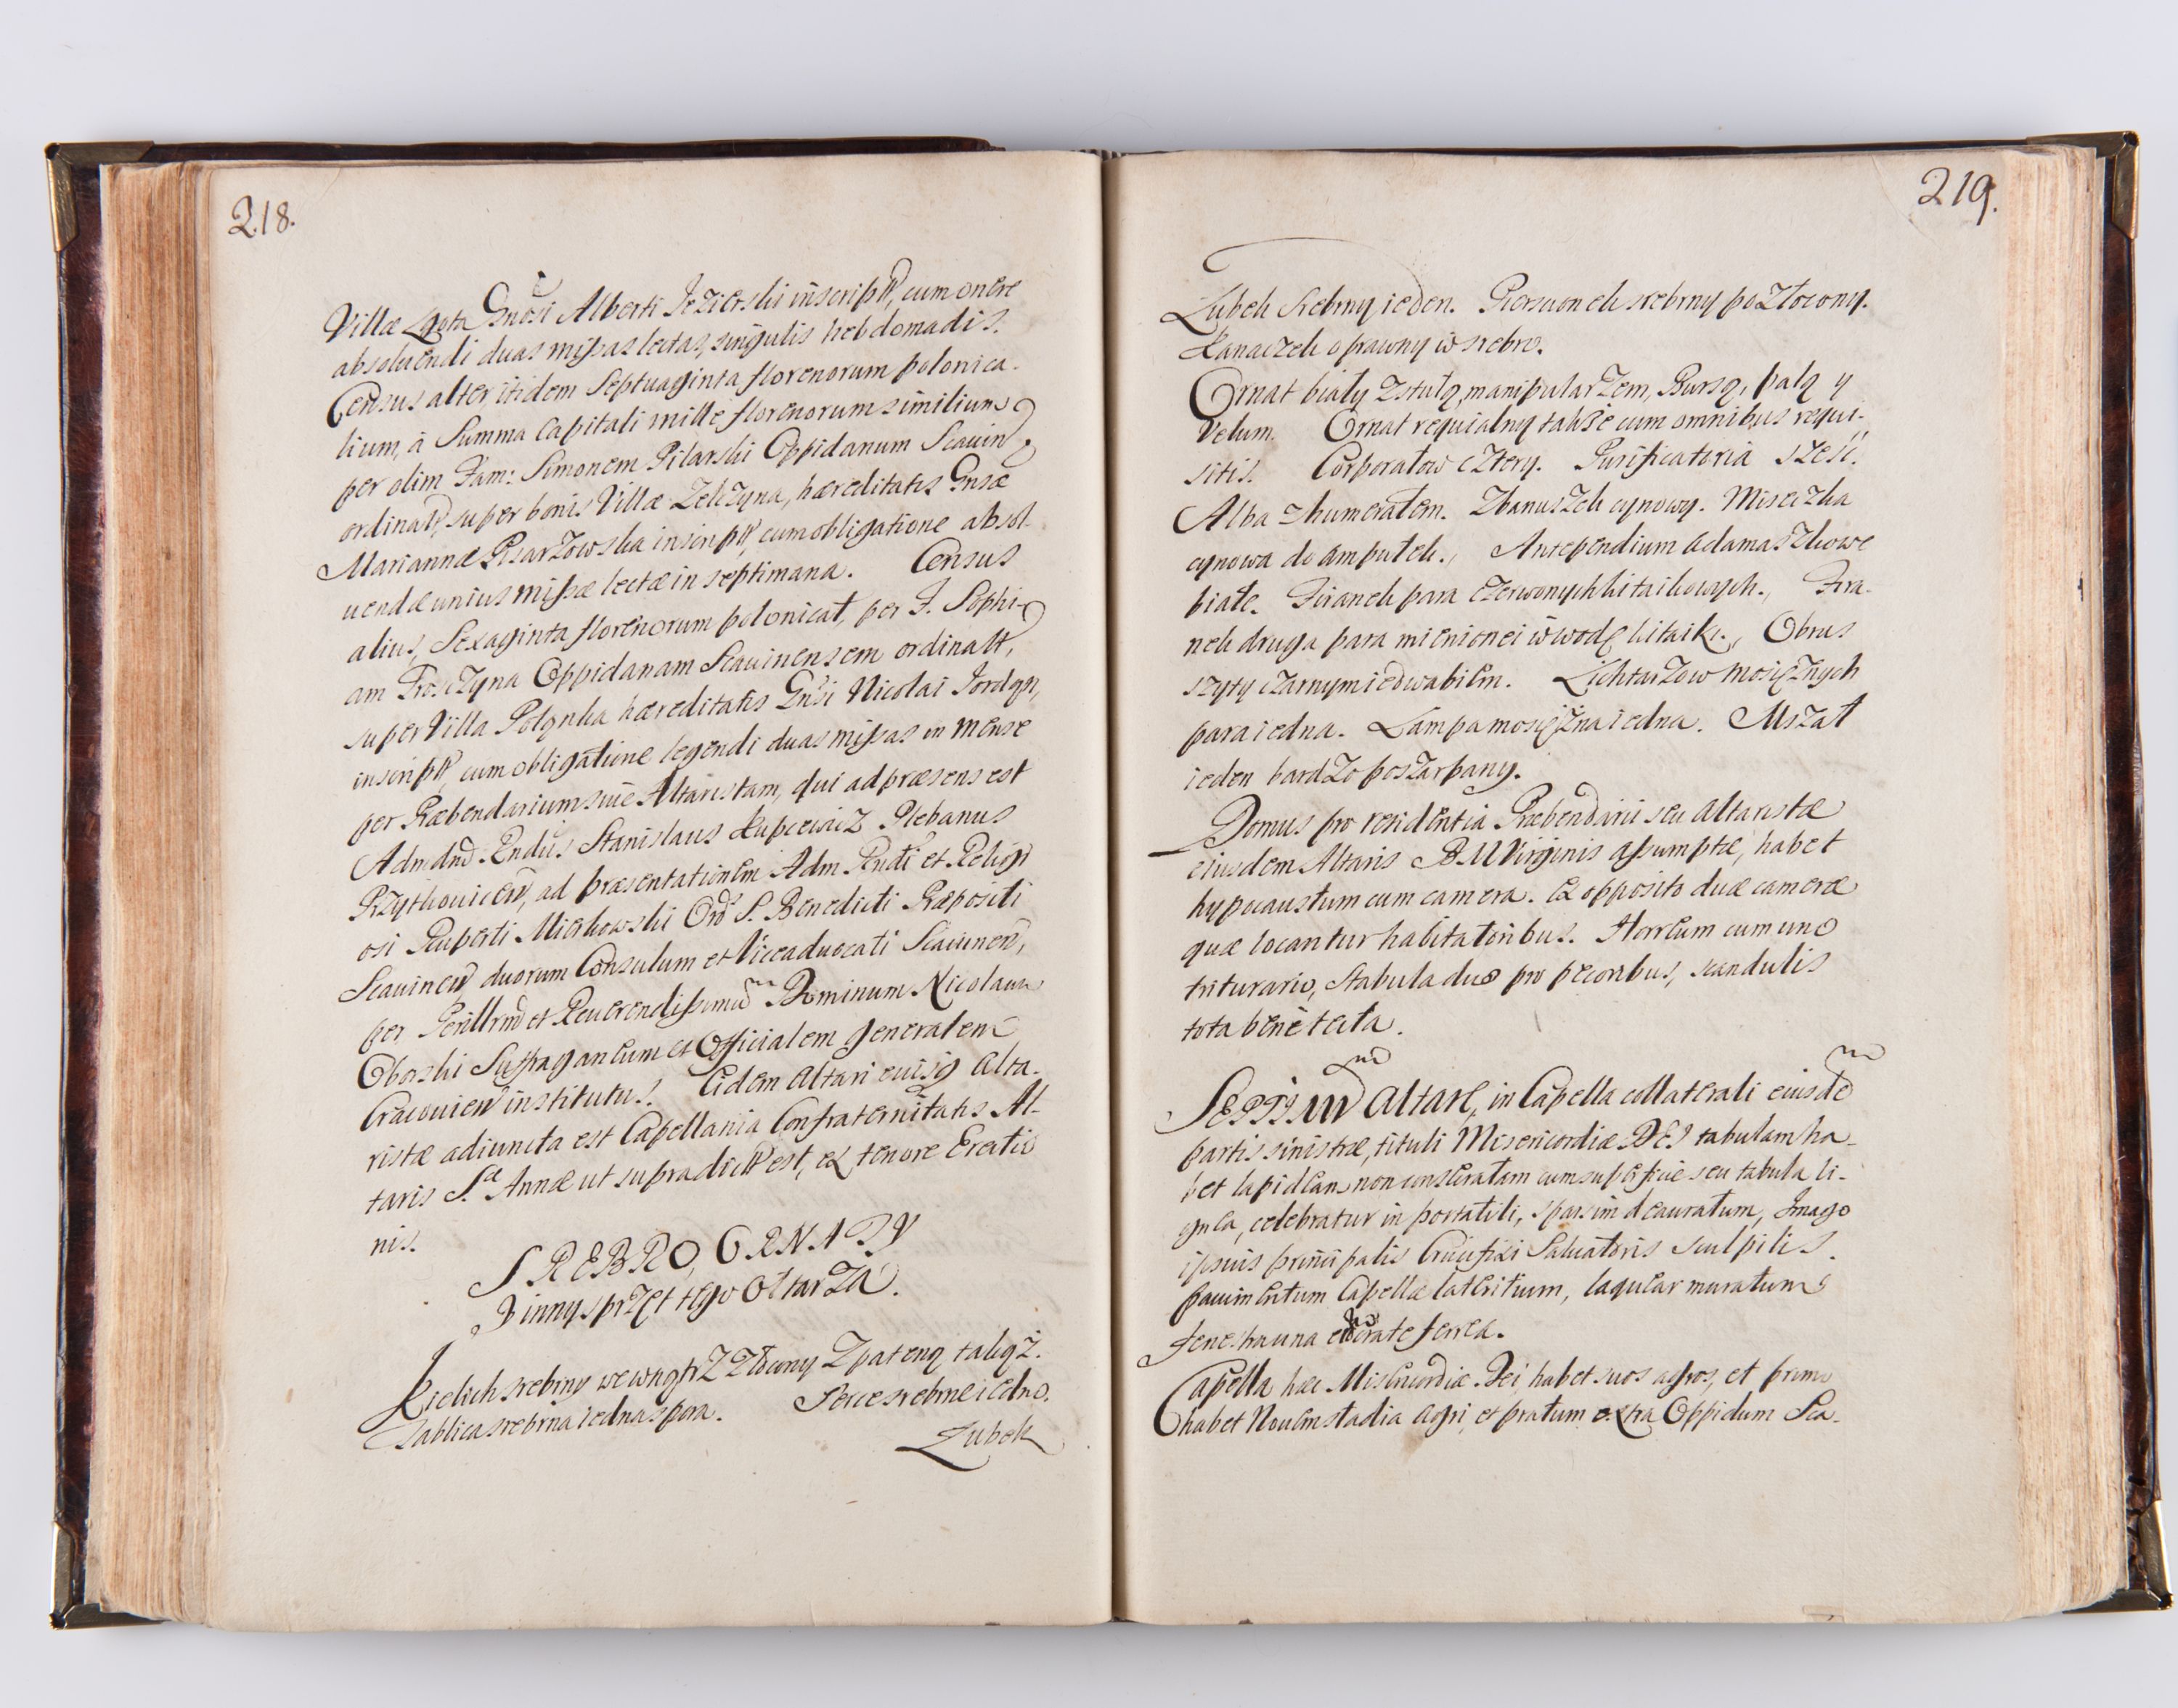 218.
Villæ Lgota Gnosi Alberti Jezierski inscript, cum onere
absoluendi duas missas lectas, singulis hebdomadis.
Census alter itidem Septuaginta florenorum polonica-
lium, à Summa Capitali mille florenorum similium
per olim Fam: Simonem Pilarski Oppidanum Scauin
ordinat, super bonis Villæ Zelczyna, hæreditatis Gnsæ
Mariannæ Pisarzowska inscript, cum obligatione absol-
uendæ unius missæ lectæ in septimana. Census
alius, Sexaginta florenorum polonicat, per F. Sophi-
am Proszczyna Oppidanam Scauinensem ordinatt,
super Villa Polanka hæreditatis Gnsi Nicolai Jordan,
inscript, cum obligatione legendi duas missas in mense
per Præbendarium siue Altaristam, qui ad præsens est
Adm dnd Rndus Stanislaus Kupcewicz Plebanus
Przytkouicen, ad præsentationem Adm Rndi et Religi
osi Ruperti Mierkowski Ord S. Benedicti Præpositi
Scauinen, duorum Consulum et Viceaduocati Scauinen,
per Perillrm et Reuerendissimu Dominum Nicolaum
Oborski Suffraganeum et Officialem generalem
Cracouien institutus. Eidem Altari cuisq Alta-
ristæ adiuncta est Capellania Confraternitatis Al-
taris S.æ Annæ ut supra dictt est, ex tenore Erectio
nis.
SREBRO, ORNATY
Y inny sprzęt tego Ołtarza.
Kielich srebrny wewnątrz złocony z pateną takąż.
Tablica srebrna iedna spora. Serce srebrne iedno.
Zubek
219.
Zubek srebrny ieden. Pierscionek srebrny pozłocony.
Kanaczek oprawny w srebro.
Ornat biały z stułą, manipularzem, Bursą, palą y
Velum. Ornat requialny takze cum omnibus requi-
sitis. Corporałow cztery. Purificatoria szesc.
Alba z humerałem. Zbanuszek cynowy. Miseczka
cynowa do ampułek. Antependium adamaszkowe
białe. Firanek para czerwonych kitaikowych. Fira-
nek druga para mienionei w wodę kitaiki. Obrus
szyty czarnym iedwabiem. Lichtarzow mosiężnych
para iedna. Lampa mosiężna iedna. Mszał
ieden bardzo poszarpany.
Domus pro residentia Præbendarii seu Altaristæ
eiusdem Altaris B.M Virginis assumptæ, habet
hypocaustum cum camera. Ex opposito duæ cameræ
quæ locantur habitatoribus. Horreum cum uno
triturario, stabula duo pro pecoribus, scandulis
tota benè tecta.
SEPTIMum Altare, in Capella collaterali eiusde
partis sinistræ, tituli Misericordiæ DEI tabulam ha-
bet lapideam non consecratam cum superficie seu tabula li-
gnea, celebratur in portatili, sparsim deauratum, Imago
ipsius principalis Crucifixi Saluatoris sculpilis.
pauimentum Capellæ lateritium, laquear muratum
fenestra una cum crate ferrea.
Capella hæc Misericordiæ Dei habet suos agros, et primo
habet Nouem stadia agri, et pratum extra Oppidum Sca-